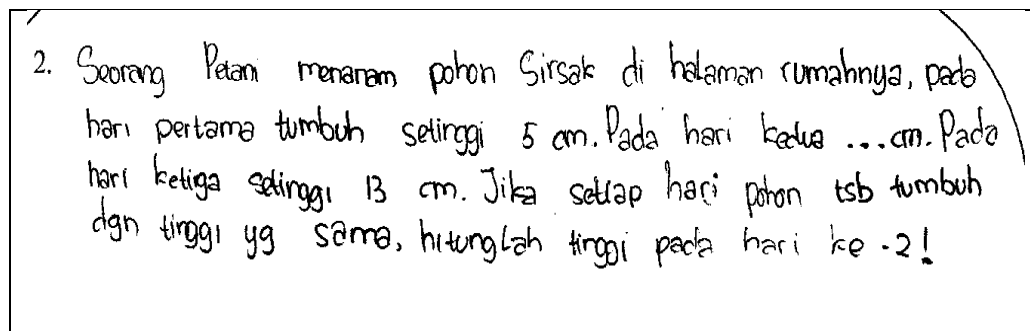 2. Seorang Petani menanam pohon Sirsak di halaman rumahnya, pada
hari pertama tumbuh setinggi 5 cm. Pada hari kedua ... cm. Pada
hari ketiga setinggi 13 cm. Jika setiap hari pohon tsb tumbuh
dgn tinggi yg sama, hitunglah tinggi pada hari ke-2!